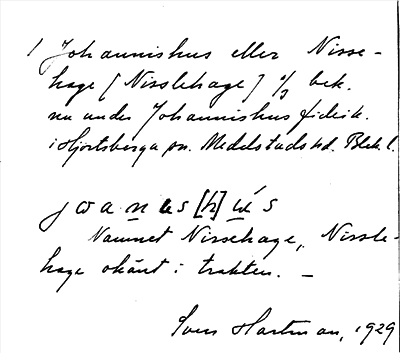 1 Johannishus eller Nisse-
hage [Nisslehage] % bek.
nu under Johannishus fideik.
i Hjortsberga sn. Medelstads hd. Blek. l.
jωanus[h]ẃs
Namnet Nissehage, Nissle-
hage okänt i trakten. –
Sven Hartman, 1929